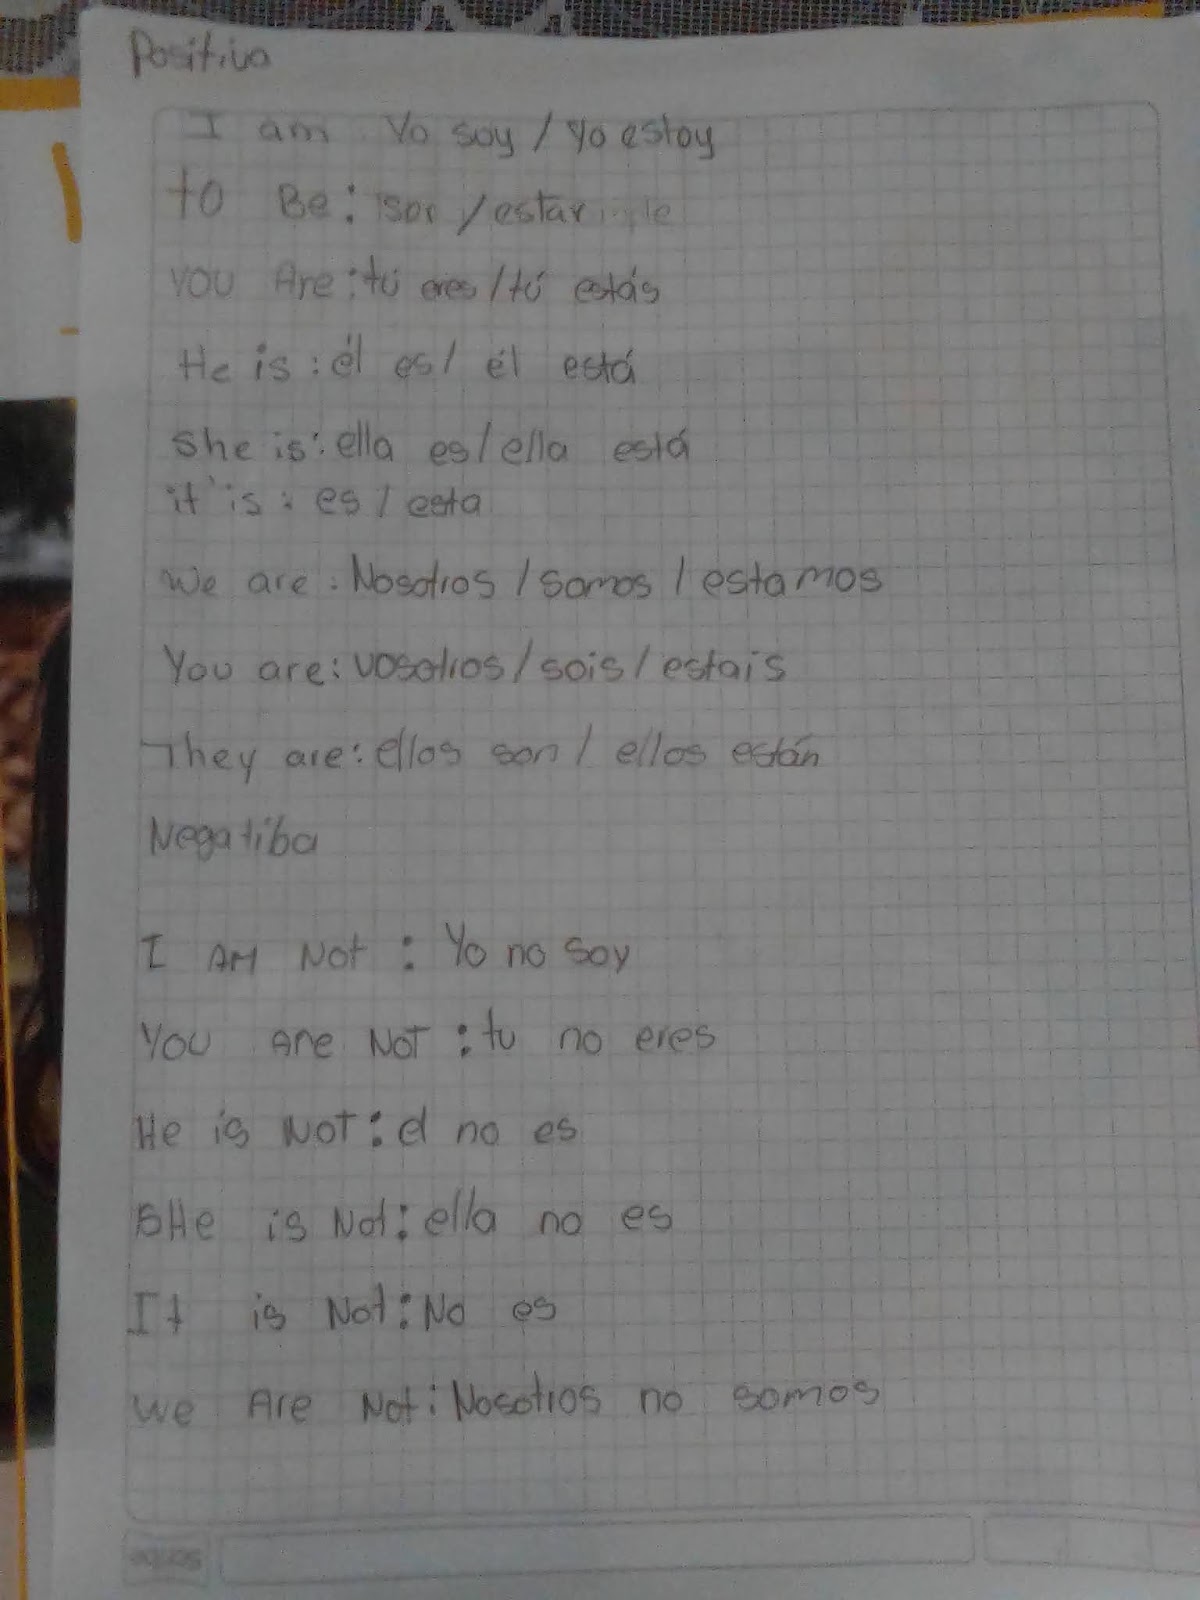 Positiva
I am Yo soy / Yo estoy
to Be: ser / estar
you Are: tú eres / tú estás
He is: él es / él está
she is: ella es / ella está
it'is: es / esta
We are: Nosotros / somos / estamos
You are: vosotros / sois / estais
They are: ellos son / ellos están
Negatiba
I AM Not: Yo no soy
YOU Are NOT: tu no eres
He is NOT: el no es
SHe is Not: ella no es
It is Not: No es
We Are Not: Nosotros no somos
scribe